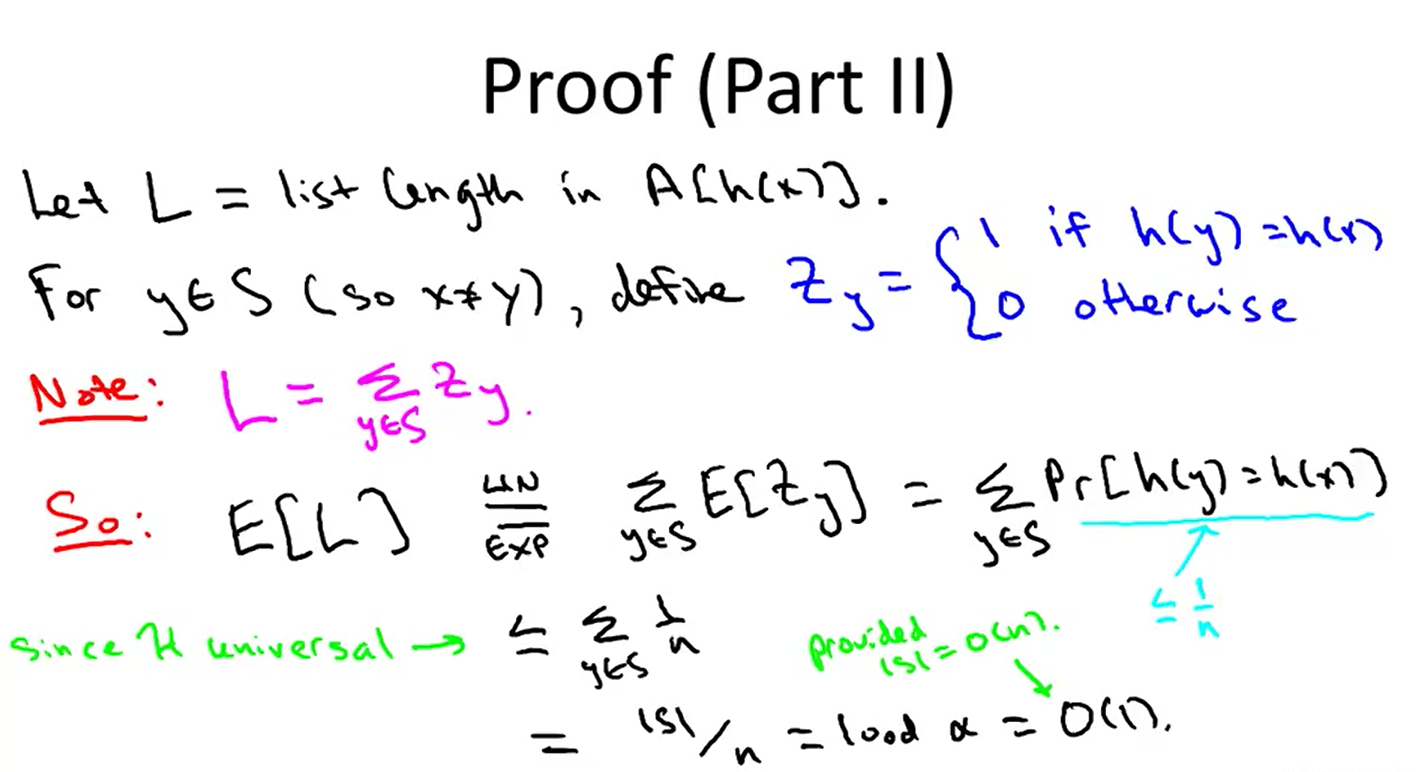 Proof (Part II)
Let L = list length in A[h(x)].
For y∈S (so x≠y), define Z_y = { 1 if h(y)=h(x)
0 otherwise
Note: L = Σ_{y∈S} Z_y.
So: E[L] = LIN EXP Σ_{y∈S} E[Z_y] = Σ_{y∈S} Pr[h(y)=h(x)]
≤ 1/n
since H universal → ≤ Σ_{y∈S} 1/n
provided
|S| = O(n).
= |S|/n = load α = O(1).